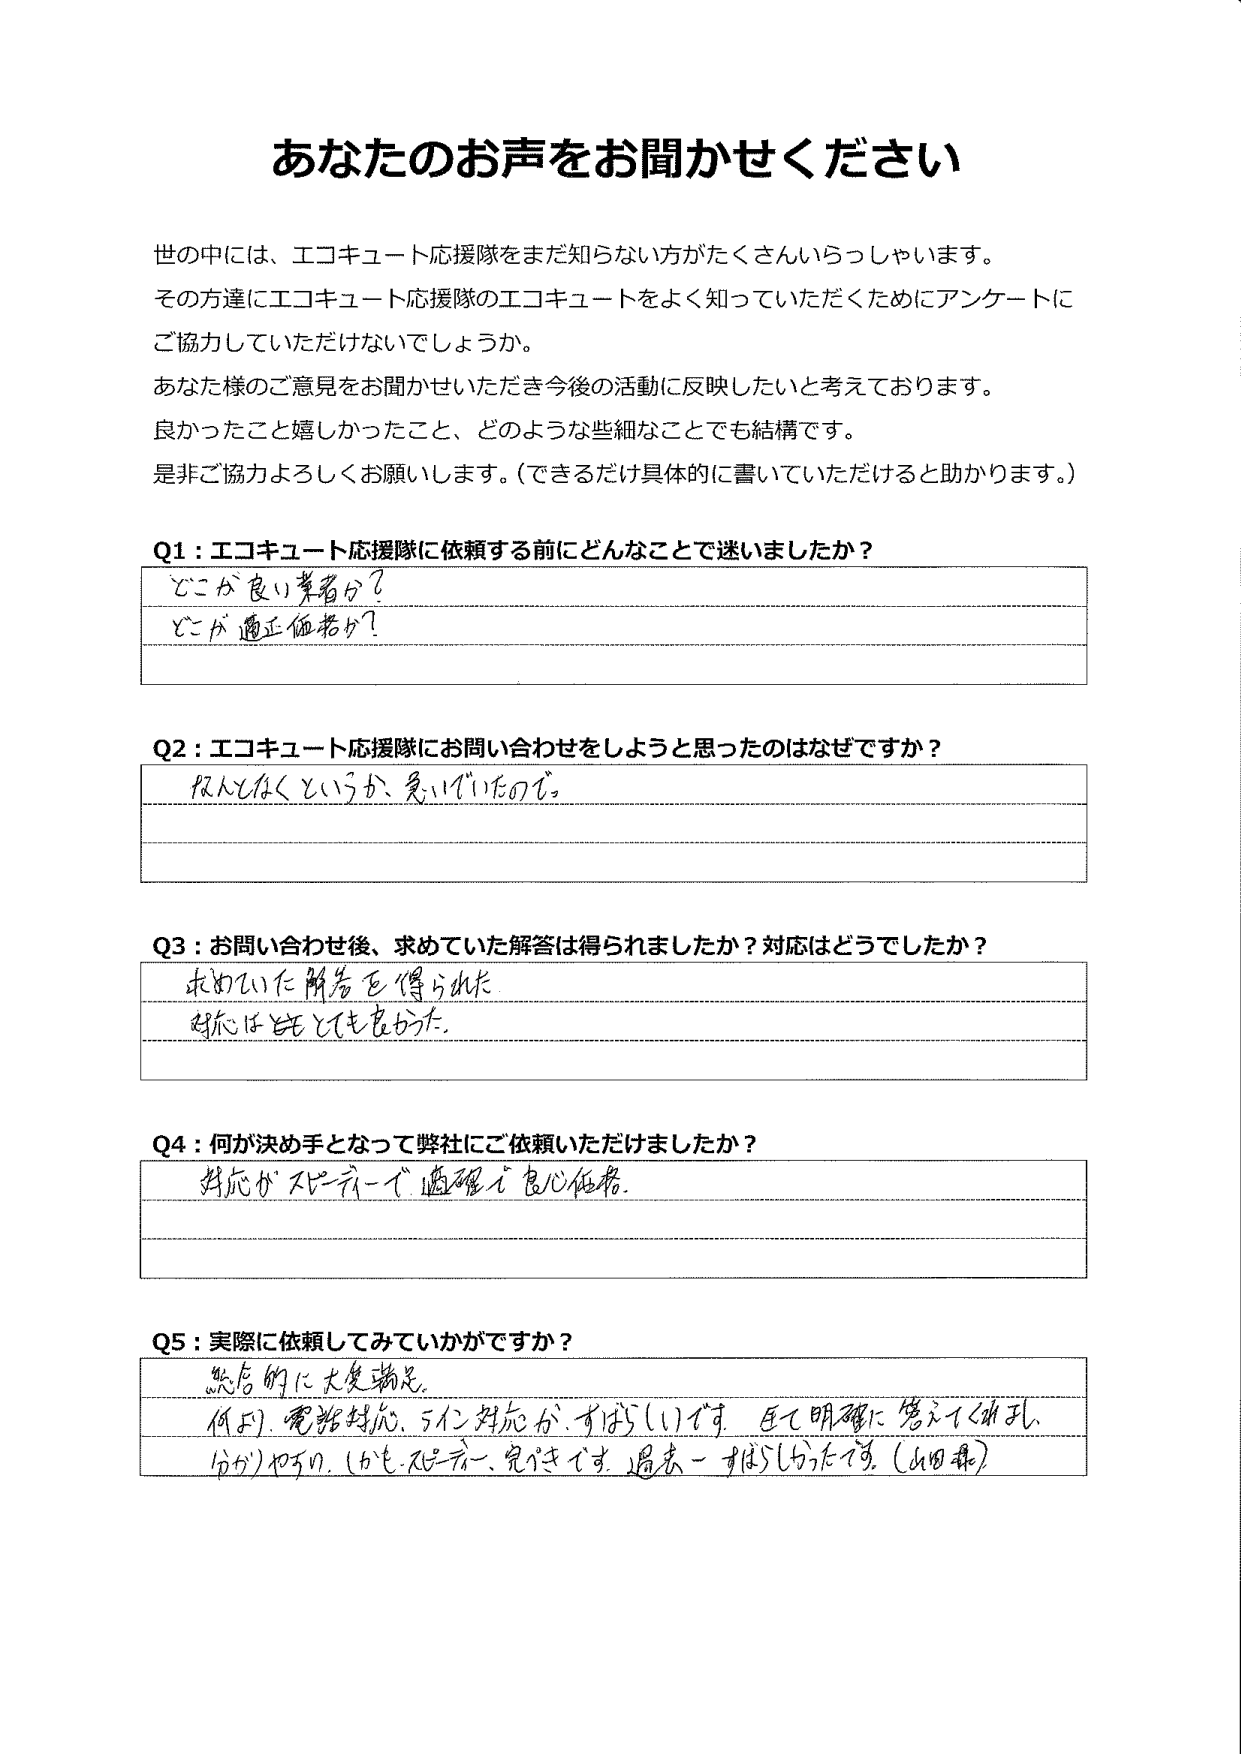 あなたのお声をお聞かせください
世の中には、エコキュート応援隊をまだ知らない方がたくさんいらっしゃいます。
その方達にエコキュート応援隊のエコキュートをよく知っていただくためにアンケートに
ご協力していただけないでしょうか。
あなた様のご意見をお聞かせいただき今後の活動に反映したいと考えております。
良かったこと嬉しかったこと、どのような些細なことでも結構です。
是非ご協力よろしくお願いします。（できるだけ具体的に書いていただけると助かります。）
Q1：エコキュート応援隊に依頼する前にどんなことで迷いましたか？
どこが良い業者か？
どこが適正価格か？
Q2：エコキュート応援隊にお問い合わせをしようと思ったのはなぜですか？
なんとなくというか、急いでいたので。
Q3：お問い合わせ後、求めていた解答は得られましたか？対応はどうでしたか？
求めていた解答を得られた
対応はとても良かった。
Q4：何が決め手となって弊社にご依頼いただけましたか？
対応がスピーディーで適確で良心価格。
Q5：実際に依頼してみていかがですか？
総合的に大変満足。
何より、電話対応、ライン対応が、すばらしいです。全て明確に答えてくれまし
分かりやすい、しかも、スピーディー、完ぺきです。過去一すばらしかったです。（山田様）